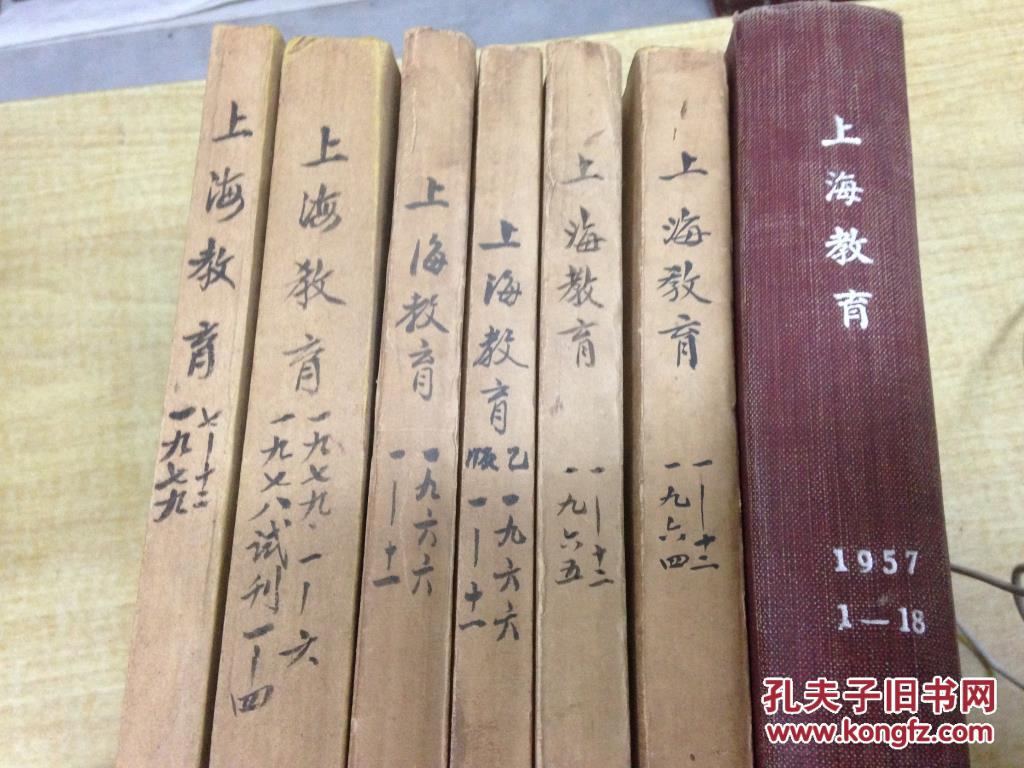 上海教育
七—十二
一九七九
上海教育
一九七九·一—六
一九七八试刊一—四
上海教育
一九六六
一—十一
上海教育
乙版
一九六六
一—十一
上海教育
一—十二
一九六五
上海教育
一—十二
一九六四
上海教育
1957
1—18
孔夫子旧书网
www.kongfz.com